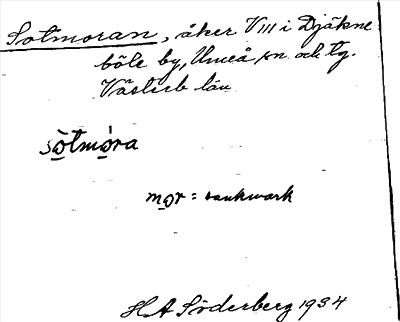 Sotmoran, åker VIII i Djäkne
böle by, Umeå sn. och tg.
Västerb län
sòtmóra
mor = sankmark
H A Söderberg 1934